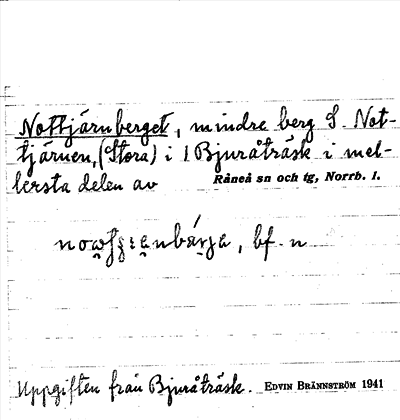 Nottjärnberget, mindre berg S. Not-
tjärnen, (Stora) i 1 Bjuråträsk i mel-
lersta delen av Råneå sn och tg, Norrb. l.
bf. n
Uppgiften från Bjuråträsk. EDVIN BRÄNNSTRÖM 1941